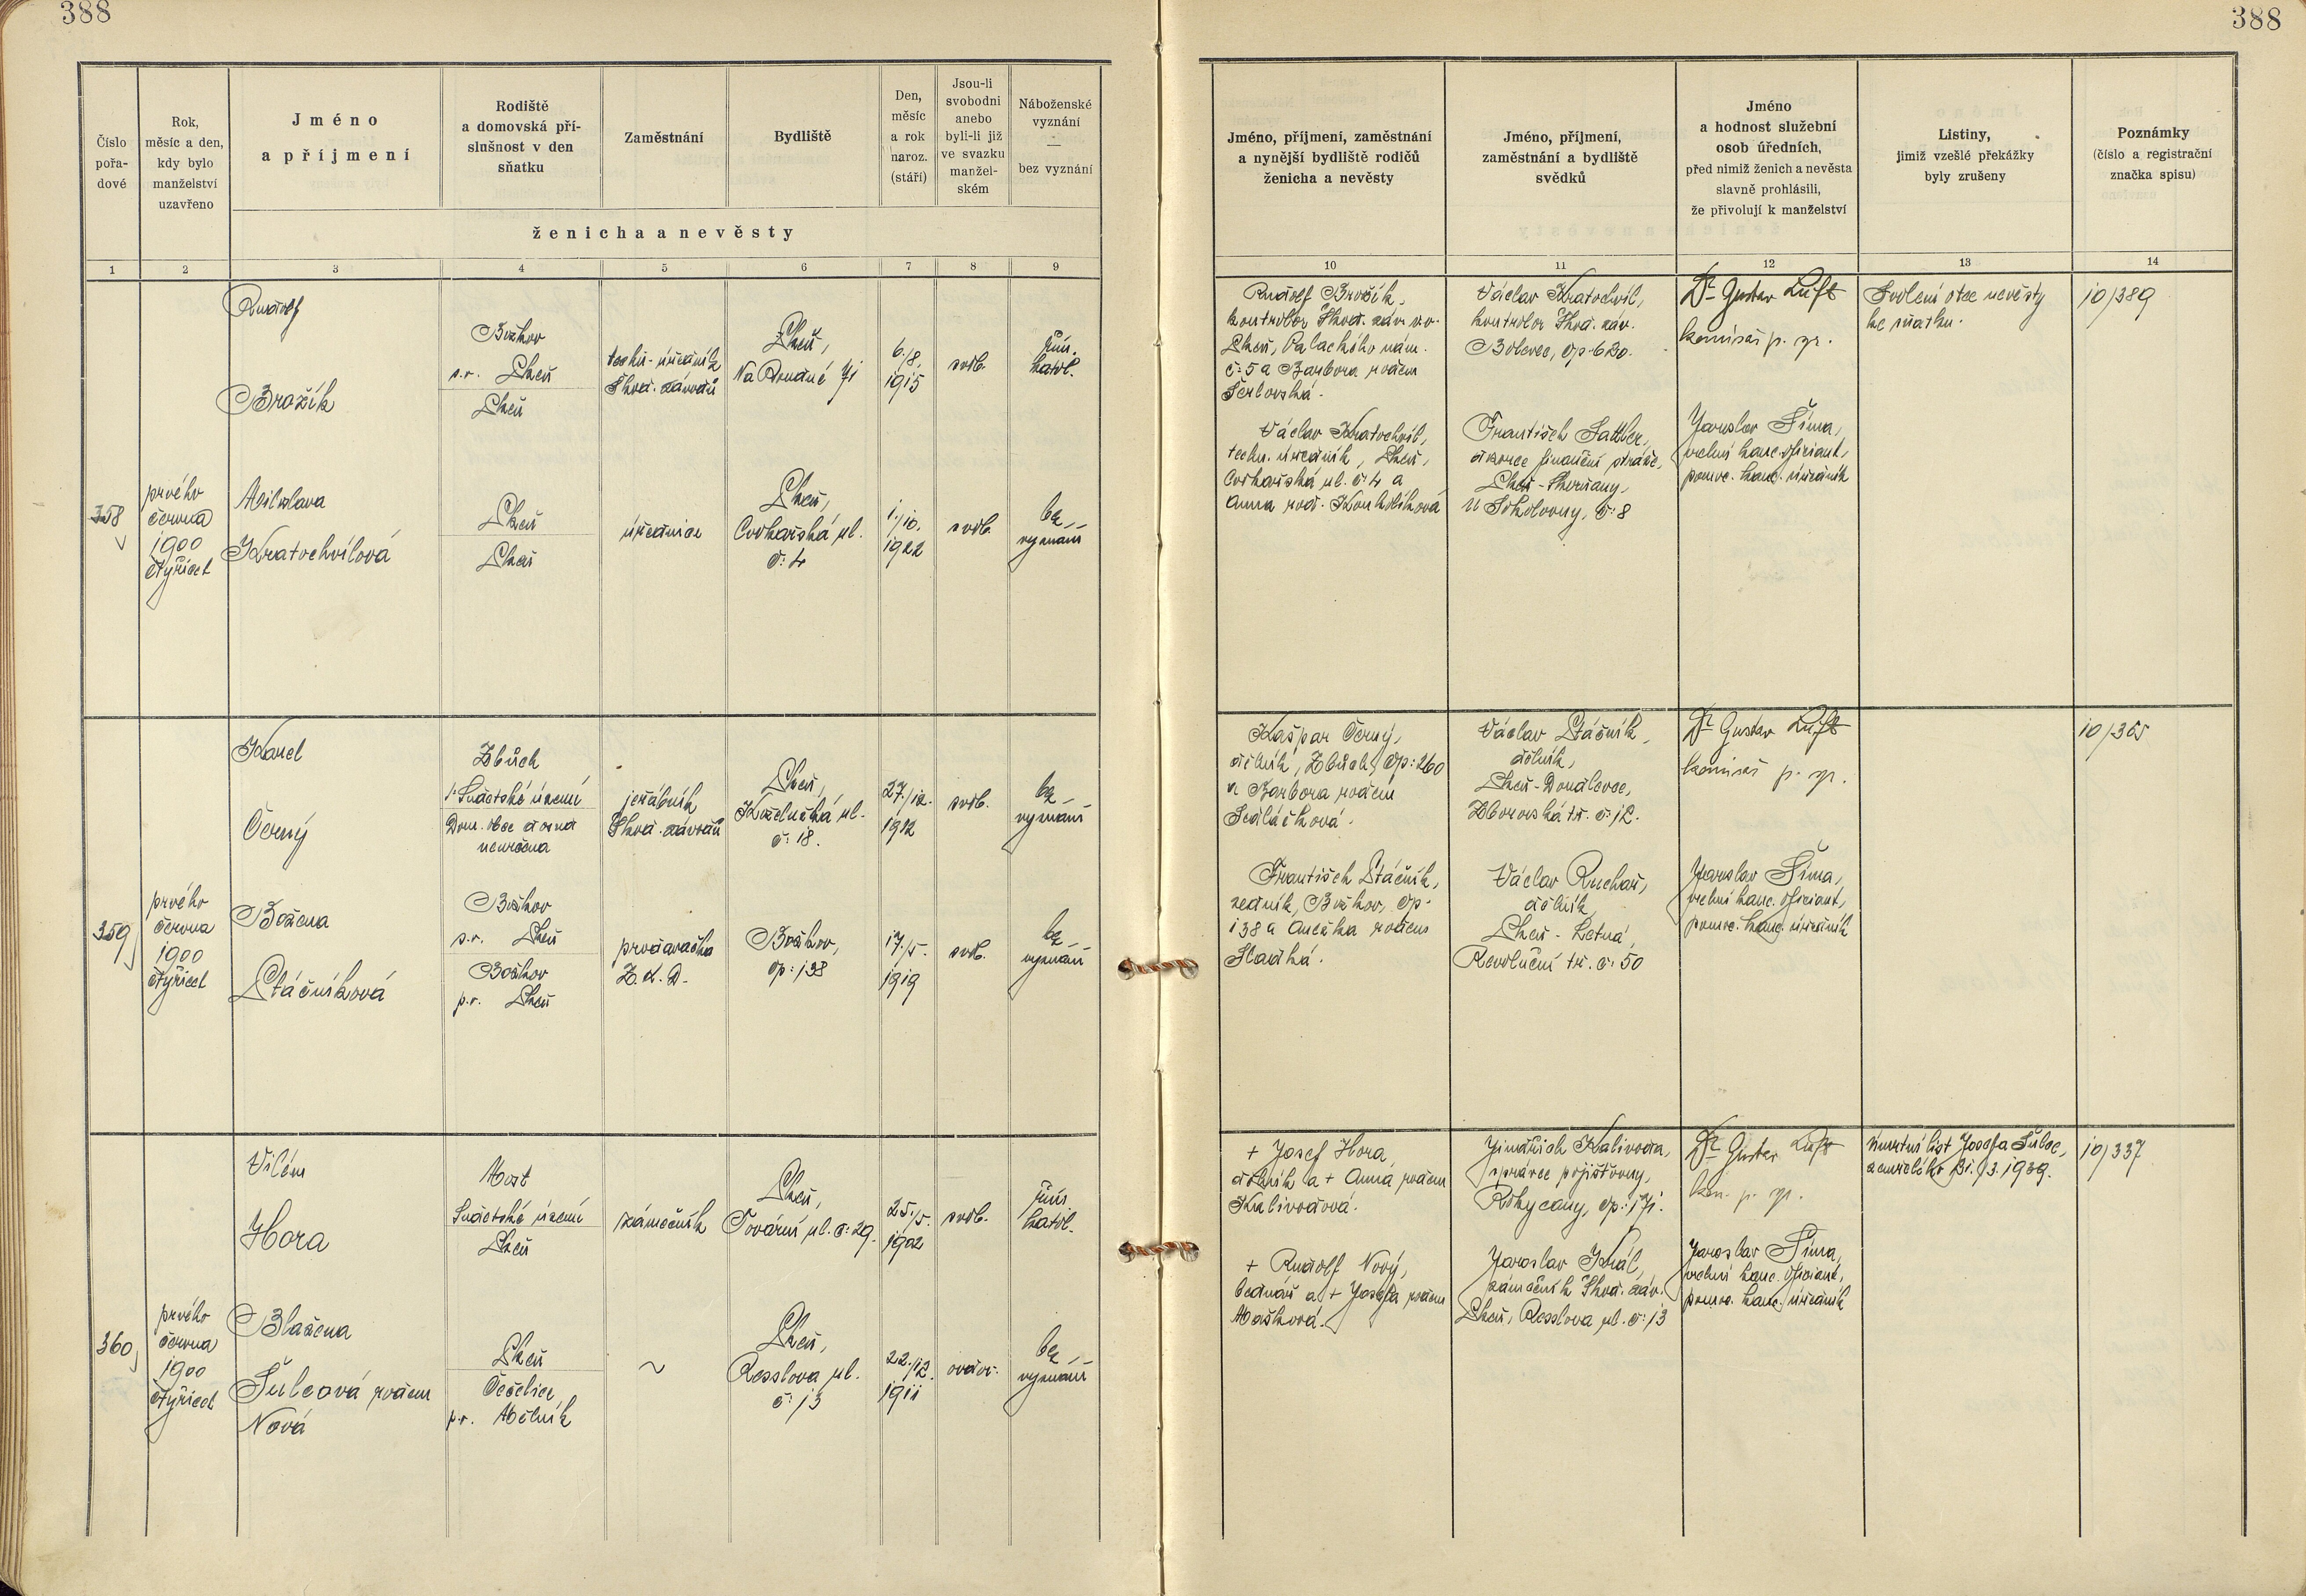 388
388
Číslo
pořa-
dové
Rok,
měsíc a den,
kdy bylo
manželství
uzavřeno
Jméno
a příjmení
Rodiště
a domovská pří-
slušnost v den
sňatku
Zaměstnání
Bydliště
Den,
měsíc
a rok
naroz.
(stáří)
Jsou-li
svobodni
anebo
byli-li již
ve svazku
manžel-
ském
Náboženské
vyznání
—
bez vyznání
ženicha a nevěsty
Jméno, příjmení, zaměstnání
a nynější bydliště rodičů
ženicha a nevěsty
Jméno, příjmení,
zaměstnání a bydliště
svědků
Jméno
a hodnost služební
osob úředních,
před nimiž ženich a nevěsta
slavně prohlásili,
že přivolují k manželství
Listiny,
jimiž vzešlé překážky
byly zrušeny
Poznámky
(číslo a registrační
značka spisu)
1 2 3 4 5 6 7 8 9 10 11 12 13 14
358
prvého
června
1900
čtyřicet
Rudolf
Brožík
Božkov
s.o. Plzeň
Plzeň
techn. úředník
Škod. závodů
Plzeň,
Na Roudné 71
6./8.
1915
svob.
řím.
katol.
Miloslava
Kratochvílová
Plzeň
Plzeň
úřednice
Plzeň,
Cvokařská ul.
č: 4
1./10.
1922
svob.
bez
vyznání
Rudolf Brožík,
kontrolor Škod. záv. v v.
Plzeň, Palackého nám.
č: 5 a Barbora rozem
Šerlovská.
Václav Kratochvíl,
techn. úředník, Plzeň,
Cvokařská ul. č: 4 a
Anna roz. Koukolíková
Václav Kratochvíl,
kontrolor Škod. záv.
Bolevec, čp. 620.
František Sattler,
dozorce finanční stráže,
Plzeň-Skvrňany,
U Sokolovny, č: 8
Dr Gustav Luft
komisař p. zr.
Jaroslav Šíma,
vrchní kanc. oficiant,
pomoc. kanc. úředník
Svolení otce nevěsty
ke sňatku.
10/389
359
prvého
června
1900
čtyřicet
Karel
Černý
Zbůch
Sudetské území
Dom. obce dosud
neurčena
jeřábník
Škod. závodů
Plzeň,
Koželužská ul.
č: 18.
27./12.
1912
svob.
bez
vyznání
Božena
Ptáčníková
Božkov
s.o. Plzeň
Božkov
p.o. Plzeň
prodavačka
Z. d. D.
Božkov,
čp: 138
17./5.
1919
svob.
bez
vyznání
Kašpar Černý,
dělník, Zbůch, čp: 260
a Barbora rozem
Sedláčková.
František Ptáčník,
zedník, Božkov, čp.
138 a Anežka rozem
Hladká.
Václav Ptáčník,
dělník,
Plzeň-Doudlevce,
Zborovská tř. č: 12.
Václav Ruchař,
dělník,
Plzeň - Letná,
Revoluční tř. č: 50
Dr Gustav Luft
komisař p. zr.
Jaroslav Šíma,
vrchní kanc. oficiant,
pomoc. kanc. úředník
10/365
360
prvého
června
1900
čtyřicet
Vilém
Hora
Most
Sudetské území
Plzeň
zámečník
Plzeň,
Tovární ul. č: 29.
25./5.
1902
svob.
řím.
katol.
Blažena
Šulcová rozem
Nová
Plzeň
Čečelice
p.o. Mělník
~
Plzeň,
Resslova ul.
č: 13
22./12.
1911
ovdov.
bez
vyznání
+ Josef Hora,
dělník a + Anna rozem
Kalivodová.
+ Rudolf Nový,
bednář a + Josefa rozem
Mašková.
Jindřich Kalivoda,
správce pojišťovny,
Rokycany, čp: 171.
Jaroslav Král,
zámečník Škod. záv.
Plzeň, Resslova ul. č: 13
Dr Gustav Luft
kom. p. zr.
Jaroslav Šíma,
vrchní kanc. oficiant,
pomoc. kanc. úředník
Úmrtní list Josefa Šulce,
zemřelého 31./3. 1939.
10/337